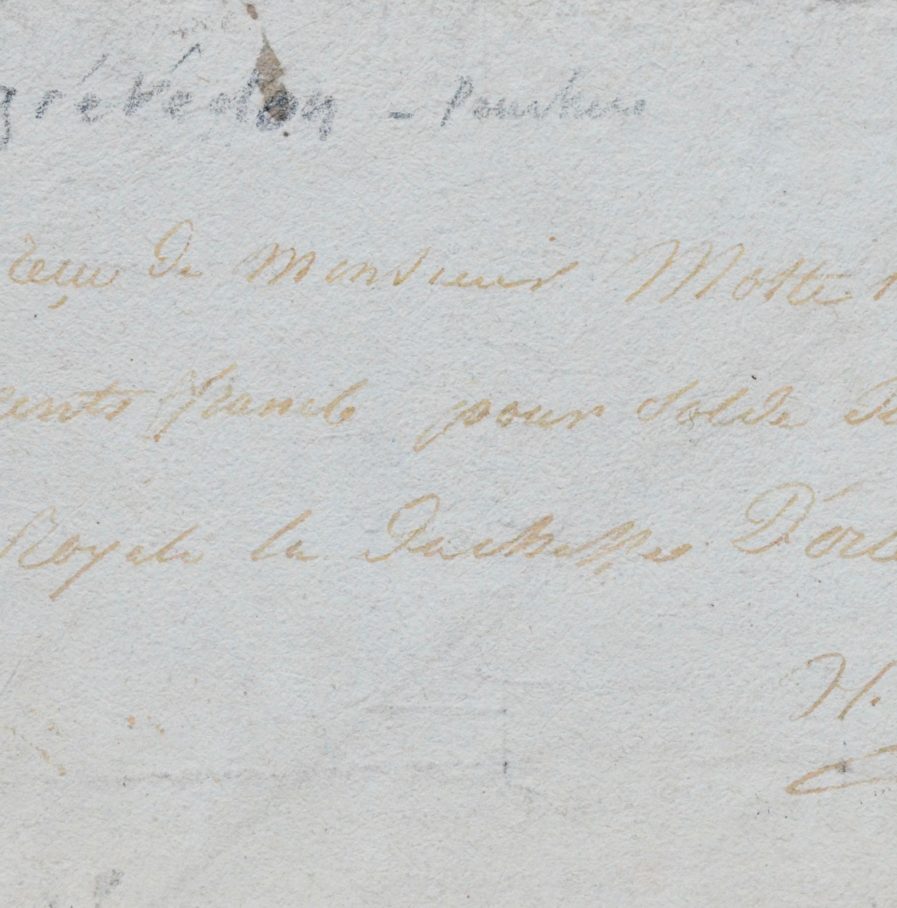 grévedon -
reçu de Monsieur Motte
cents francs pour solde
Royale la Duchesse D'orl
H.